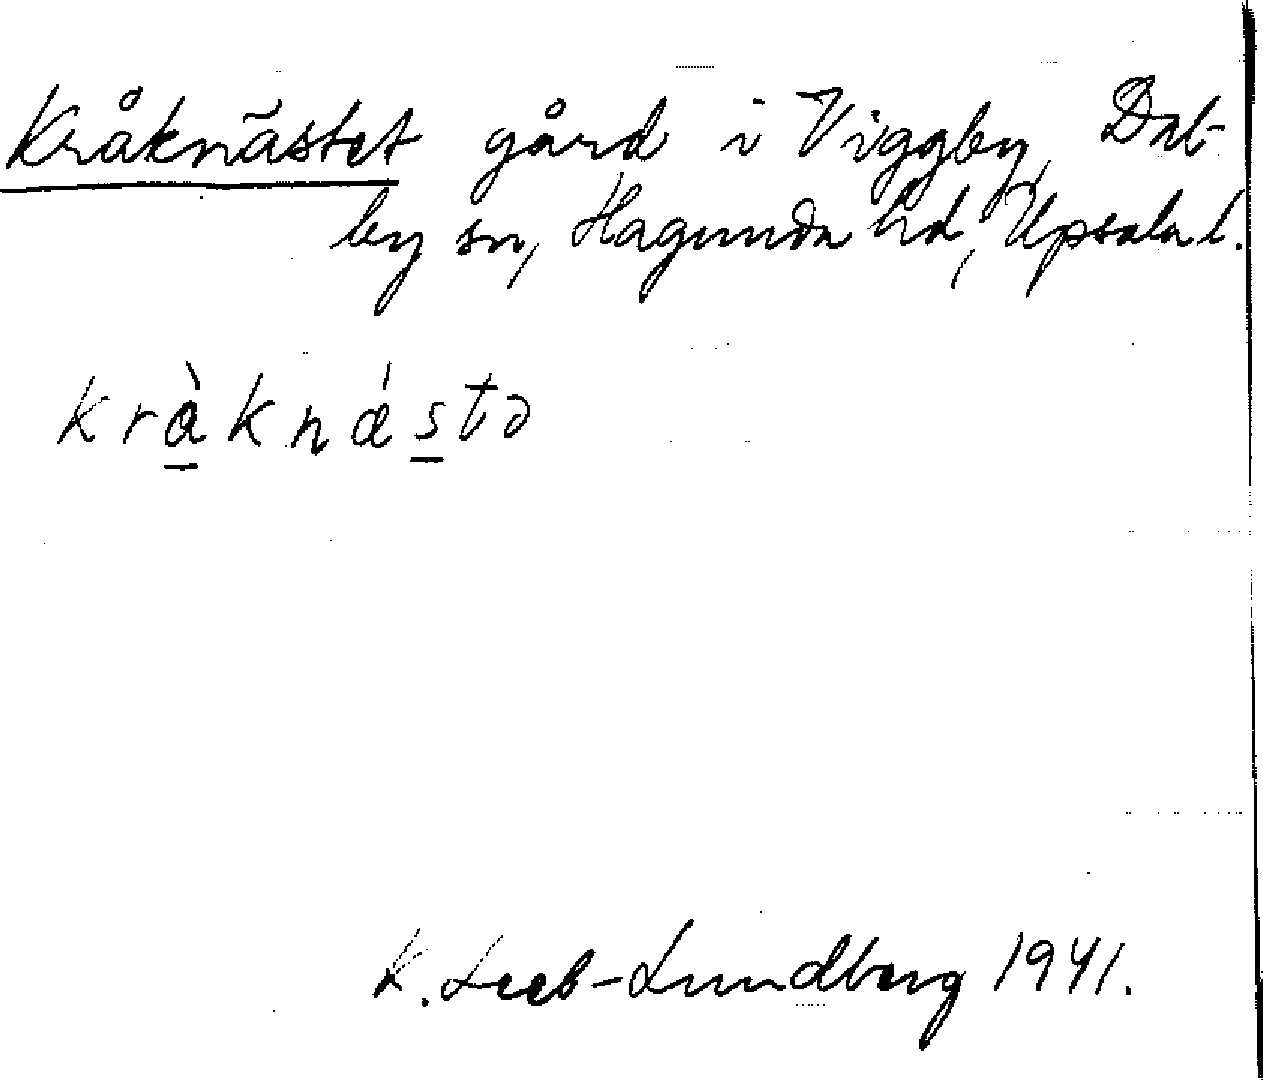 Kråknästet gård i Viggby, Dal-
by sn, Hagunda hd, Upsala l.
kràknǽstə
K. Leeb-Lundberg 1941.